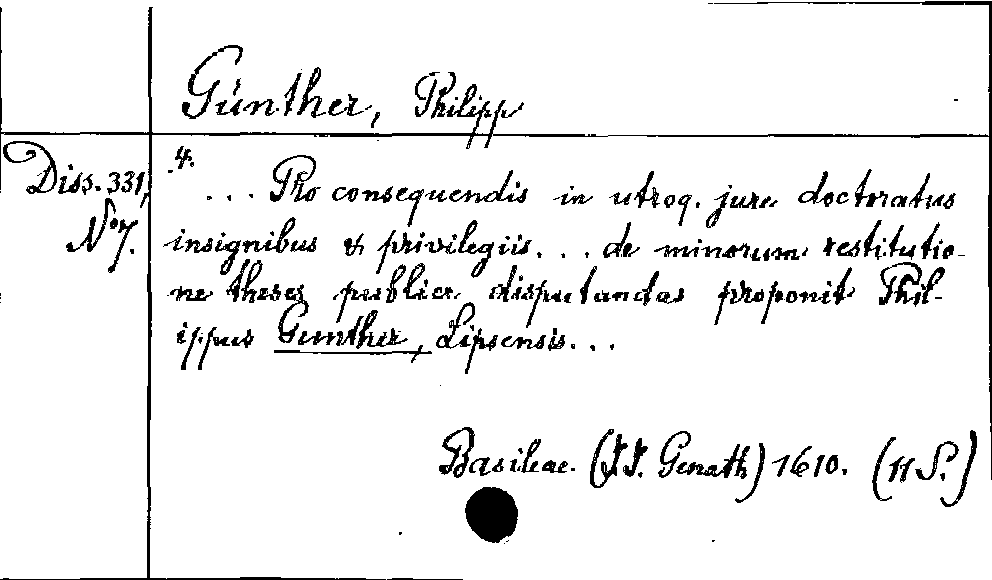 Günther, Philipp
Diss. 331,
No 7.
4.
... Pro consequendis in utroq. jure doctoratus
insignibus & privilegiis... de minorum restitutio-
ne theses publice disputandas proponit Phil-
ippus Gunther, Lipsensis...
Basileae. (J. J. Genath) 1610. (11 S.)